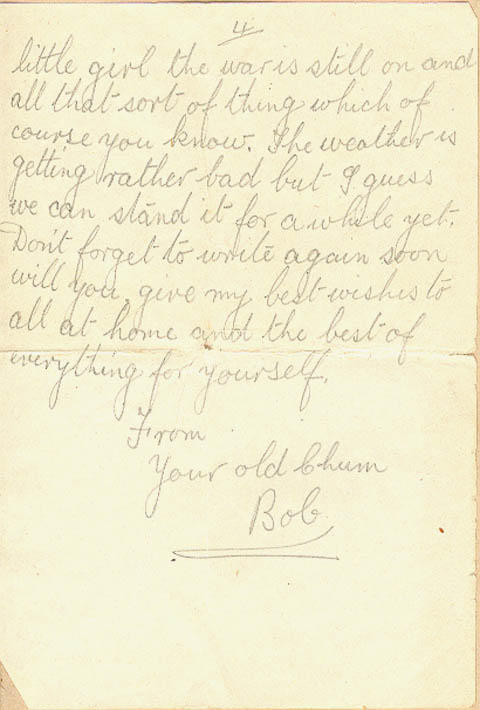 4
little girl the war is still on and
all that sort of thing which of
course you know. The weather is
getting rather bad but I guess
we can stand it for a while yet.
Don't forget to write again soon
will you, give my best wishes to
all at home and the best of
everything for yourself.
From
Your old Chum
Bob